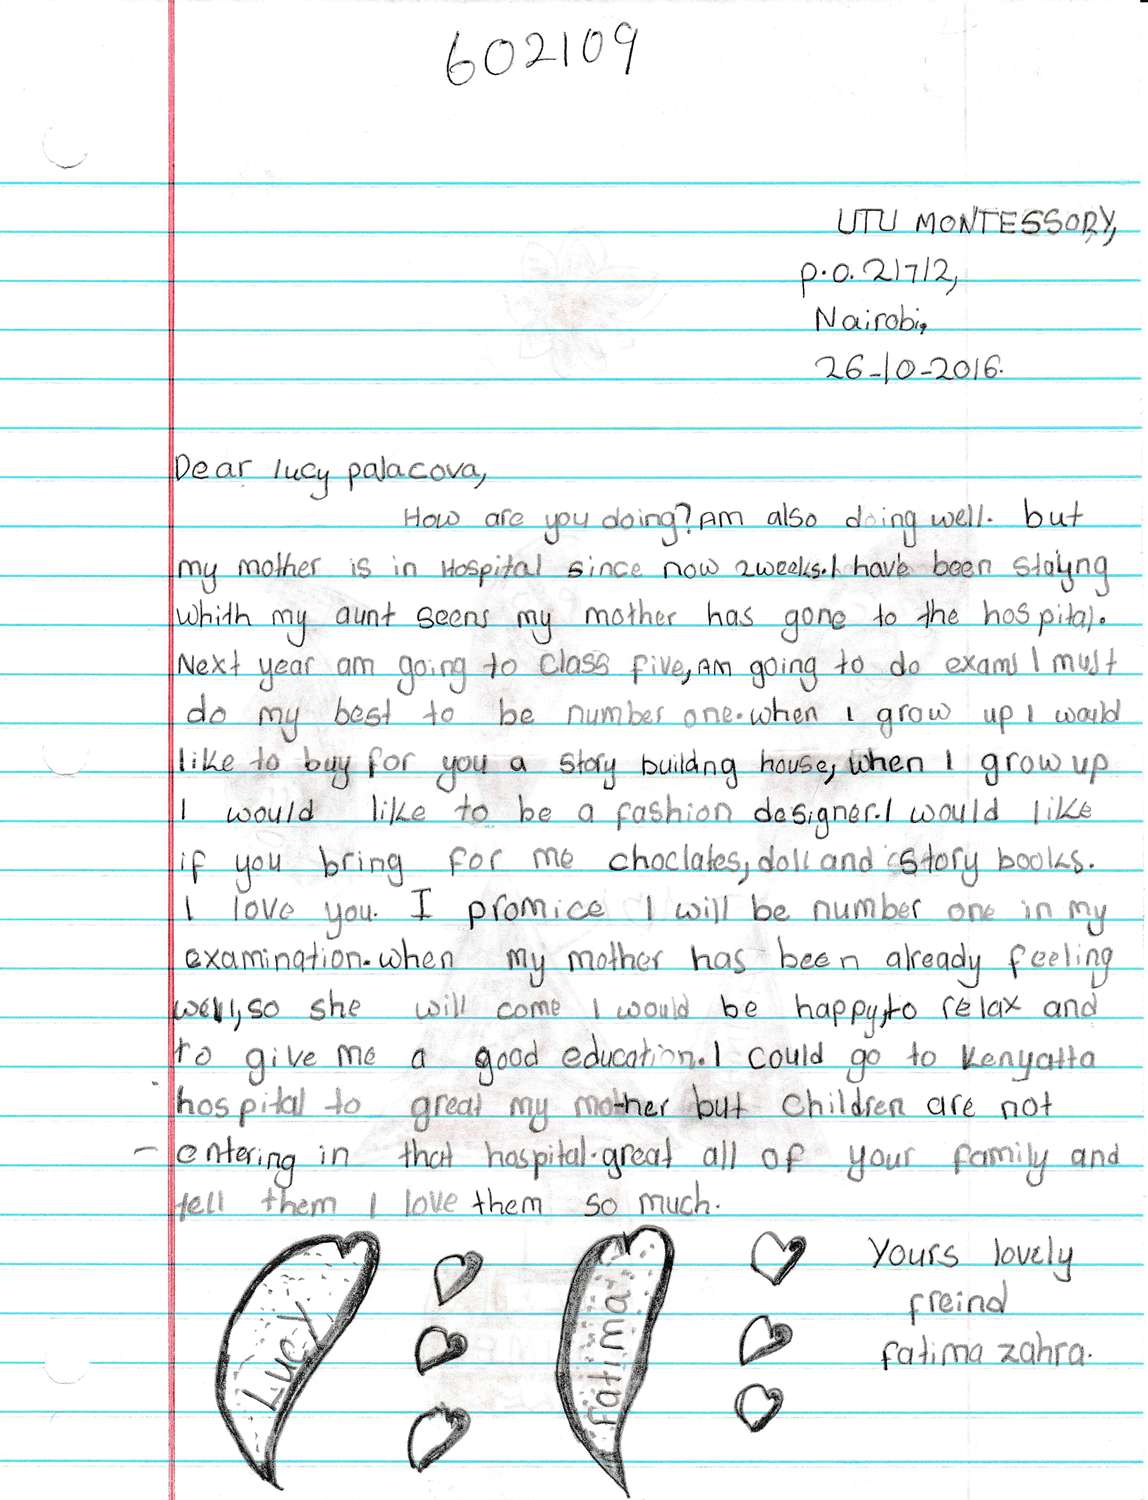 602109
UTU MONTESSORY,
p.o. 21712,
Nairobi,
26-10-2016.
Dear lucy palacova,
How are you doing? Am also doing well. but
my mother is in Hospital since now 2weeks. I have been stayng
whith my aunt seens my mother has gone to the hospital.
Next year am going to class five, Am going to do exams I must
do my best to be number one. when I grow up I would
like to buy for you a story buildng house, when I grow up
I would like to be a fashion designer. I would like
if you bring for me choclates, doll and story books.
I love you. I promice I will be number one in my
examination. when my mother has been already feeling
well, so she will come I would be happy, to relax and
to give me a good education. I could go to Kenyatta
hospital to great my mother but children are not
entering in that hospital. great all of your family and
tell them I love them so much.
Yours lovely
freind
fatima zahra.
Lucy
Fatima